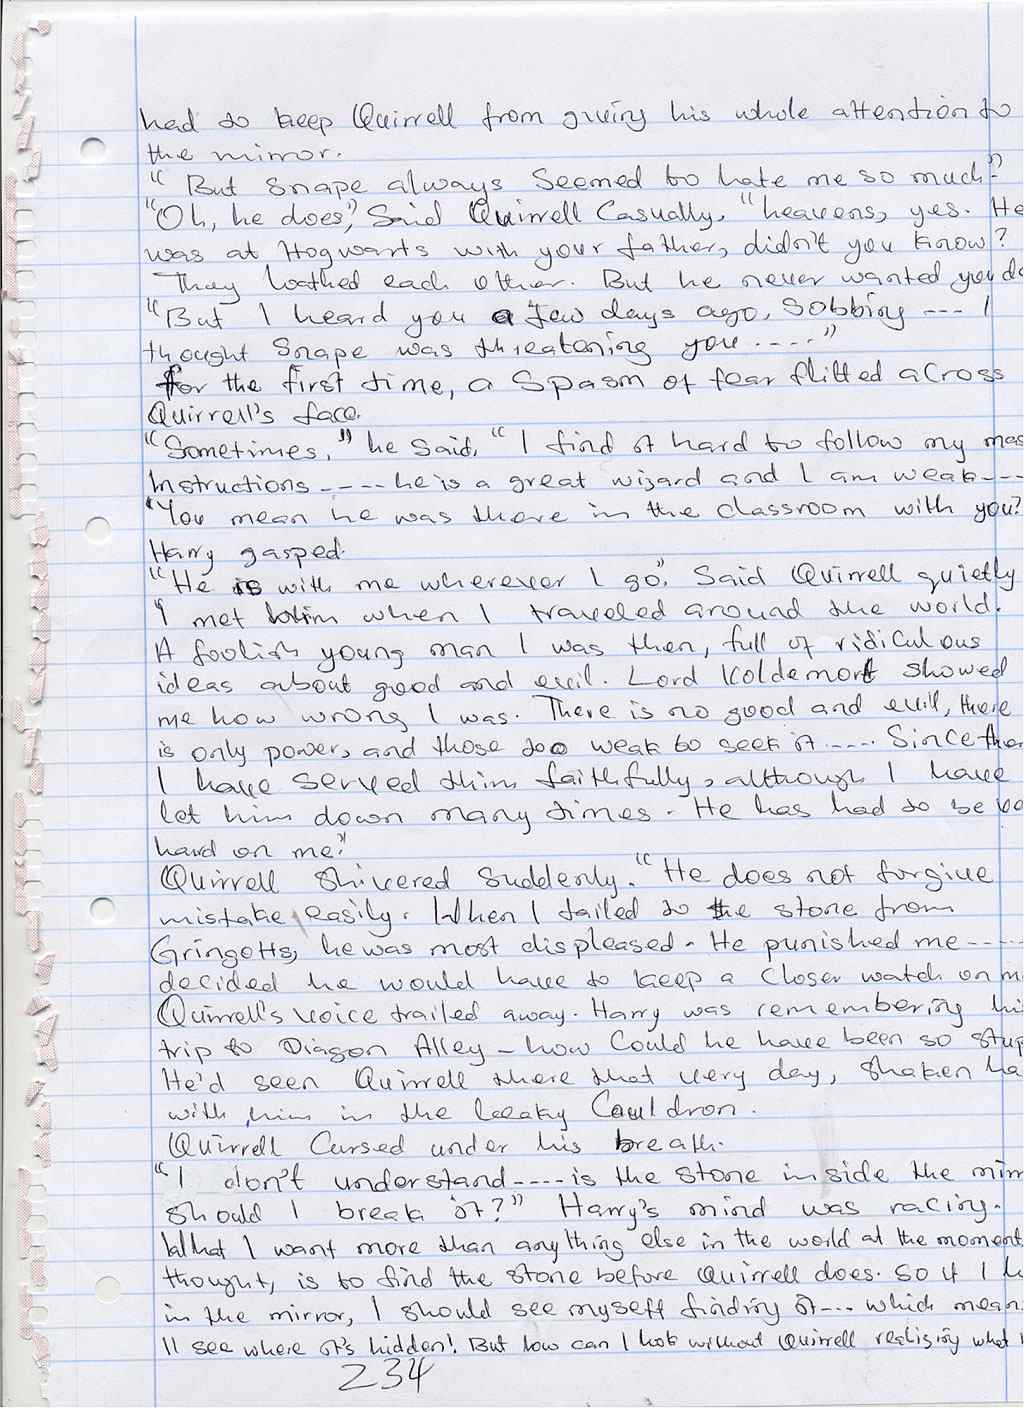 had to keep Quirrell from giving his whole attention to
the mirror.
“But Snape always seemed to hate me so much”
“Oh, he does,” Said Quirrell Casually, “heavens, yes. He
was at Hogwarts with your father, didn't you know?
They loathed each other. But he never wanted you de
“But I heard you a few days ago, sobbing --- I
thought Snape was threatening you ----”
for the first time, a Spasm of fear flitted across
Quirrell's face.
“Sometimes,” he said, “I find it hard to follow my mas
Instructions ---- he is a great wizard and I am weak ---
“You mean he was there in the classroom with you?
Harry gasped.
“He is with me wherever I go”, Said Quirrell quietly
“I met him when I traveled around the world.
A foolish young man I was then, full of ridiculous
ideas about good and evil. Lord Voldemort showed
me how wrong I was. There is no good and evil, there
is only power, and those too weak to seek it ---- Since then
I have served him faithfully, although I have
let him down many times. He has had to be ve
hard on me.”
Quirrell Shivered suddenly. “He does not forgive
mistake easily. When I failed to the stone from
Gringotts, he was most displeased. He punished me ----
decided he would have to keep a closer watch on m
Quirrell's voice trailed away. Harry was remembering hi
trip to Diagon Alley - how Could he have been so stup
He'd seen Quirrell there that very day, shaken ha
with him in the Leaky Cauldron.
Quirrell Cursed under his breath.
“I don't understand ---- is the stone inside the mirr
should I break it?” Harry's mind was racing.
What I want more than anything else in the world at the moment
thought, is to find the stone before Quirrell does. So if I l
in the mirror, I should see myself finding it --- which mean
'll see where it's hidden! But how can I look without Quirrell realising what
234